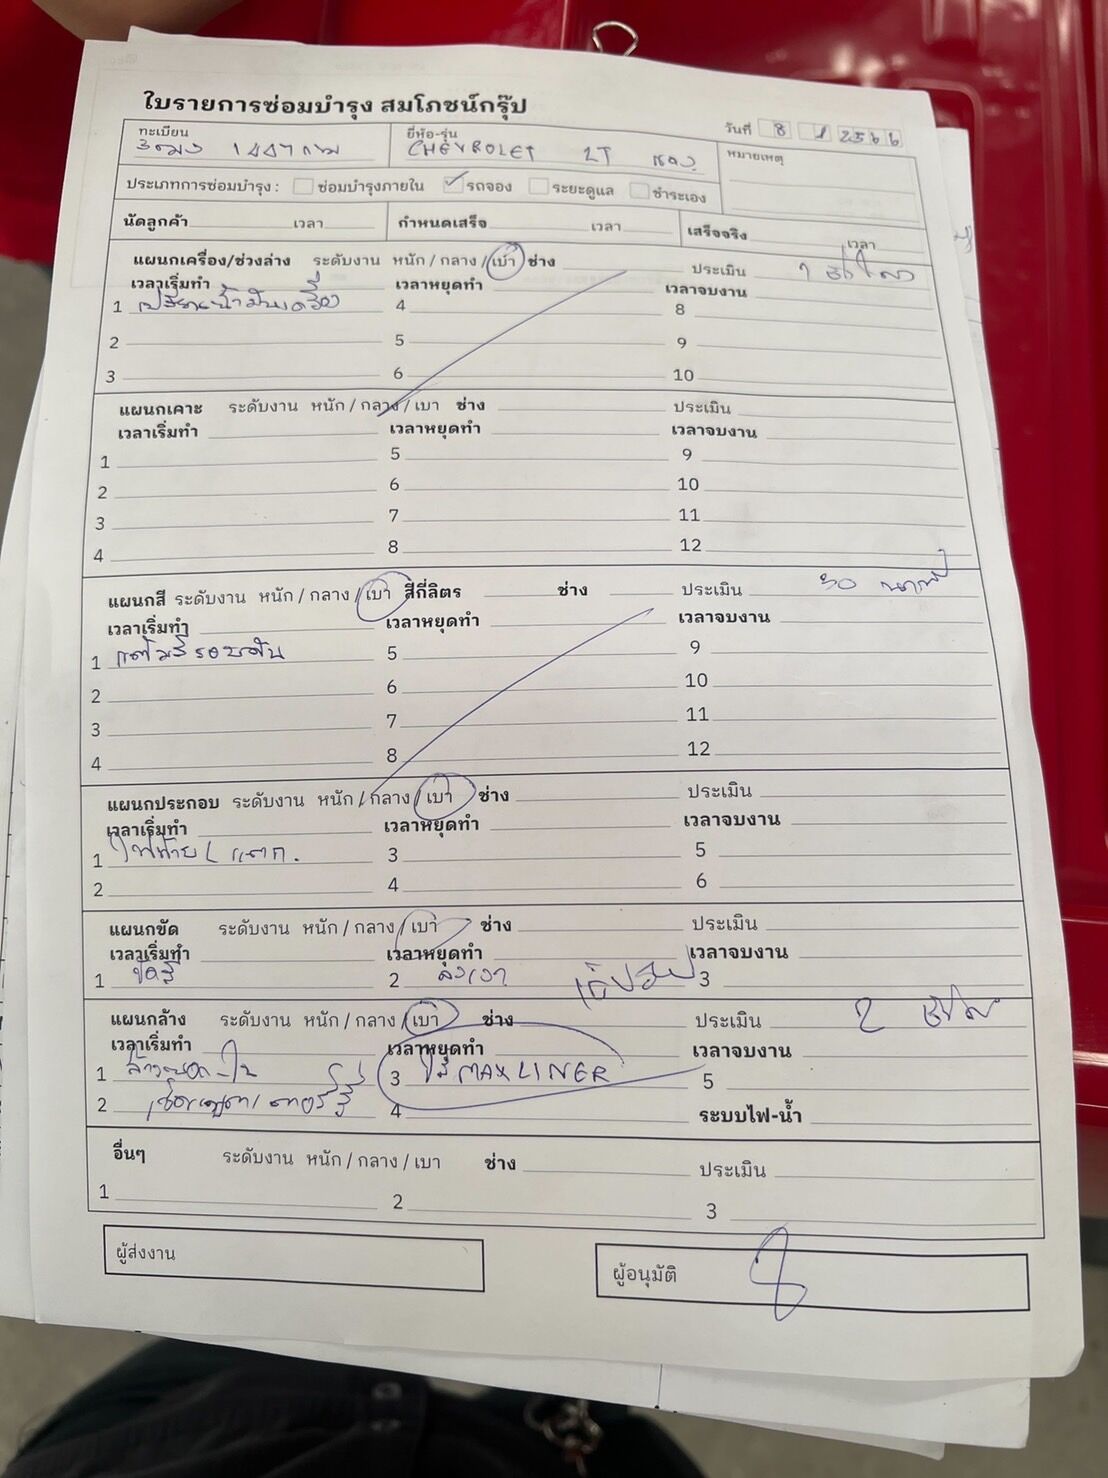 ใบรายการซ่อมบำรุง สมโภชน์กรุ๊ป
วันที่ 8 1 2566
ทะเบียน ยี่ห้อ-รุ่น CHEVROLET LT แดง หมายเหตุ
ประเภทการซ่อมบำรุง : ซ่อมบำรุงภายใน รถจอง ระยะดูแล ชำระเอง
นัดลูกค้า เวลา กำหนดเสร็จ เวลา เสร็จจริง เวลา
แผนกเครื่อง/ช่วงล่าง ระดับงาน หนัก / กลาง / เบา ช่าง ประเมิน 1 ชั่วโมง
เวลาเริ่มทำ เวลาหยุดทำ เวลาจบงาน
1 เปลี่ยนน้ำมันเครื่อง 4 8
2 5 9
3 6 10
แผนกเคาะ ระดับงาน หนัก / กลาง / เบา ช่าง ประเมิน
เวลาเริ่มทำ เวลาหยุดทำ เวลาจบงาน
1 5 9
2 6 10
3 7 11
4 8 12
แผนกสี ระดับงาน หนัก / กลาง / เบา สีกี่ลิตร ช่าง ประเมิน 30 นาที
เวลาเริ่มทำ เวลาหยุดทำ เวลาจบงาน
1 แต้มสีรอบคัน 5 9
2 6 10
3 7 11
4 8 12
แผนกประกอบ ระดับงาน หนัก / กลาง / เบา ช่าง ประเมิน
เวลาเริ่มทำ เวลาหยุดทำ เวลาจบงาน
1 ไฟท้าย L แตก. 3 5
2 4 6
แผนกขัด ระดับงาน หนัก / กลาง / เบา ช่าง ประเมิน
เวลาเริ่มทำ เวลาหยุดทำ เวลาจบงาน
1 ขัดสี 2 ลงเงา 3
แผนกล้าง ระดับงาน หนัก / กลาง / เบา ช่าง ประเมิน 2 ชั่วโมง
เวลาเริ่มทำ เวลาหยุดทำ เวลาจบงาน
1 ล้างนอก-ใน 3 ใส่ MAXLINER 5
2 4 ระบบไฟ-น้ำ
อื่นๆ ระดับงาน หนัก / กลาง / เบา ช่าง ประเมิน
1 2 3
ผู้ส่งงาน ผู้อนุมัติ